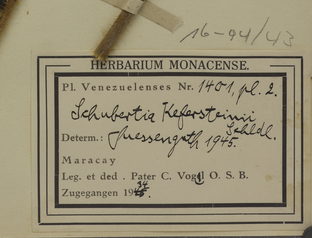 16-94/43
HERBARIUM MONACENSE.
Pl. Venezuelenses Nr. 1401, pl. 2.
Schubertia Kefersteinii
Schldl.
Determ.: Suessenguth 1945.
Maracay
Leg. et ded. Pater C. Vogl O. S. B.
Zugegangen 19